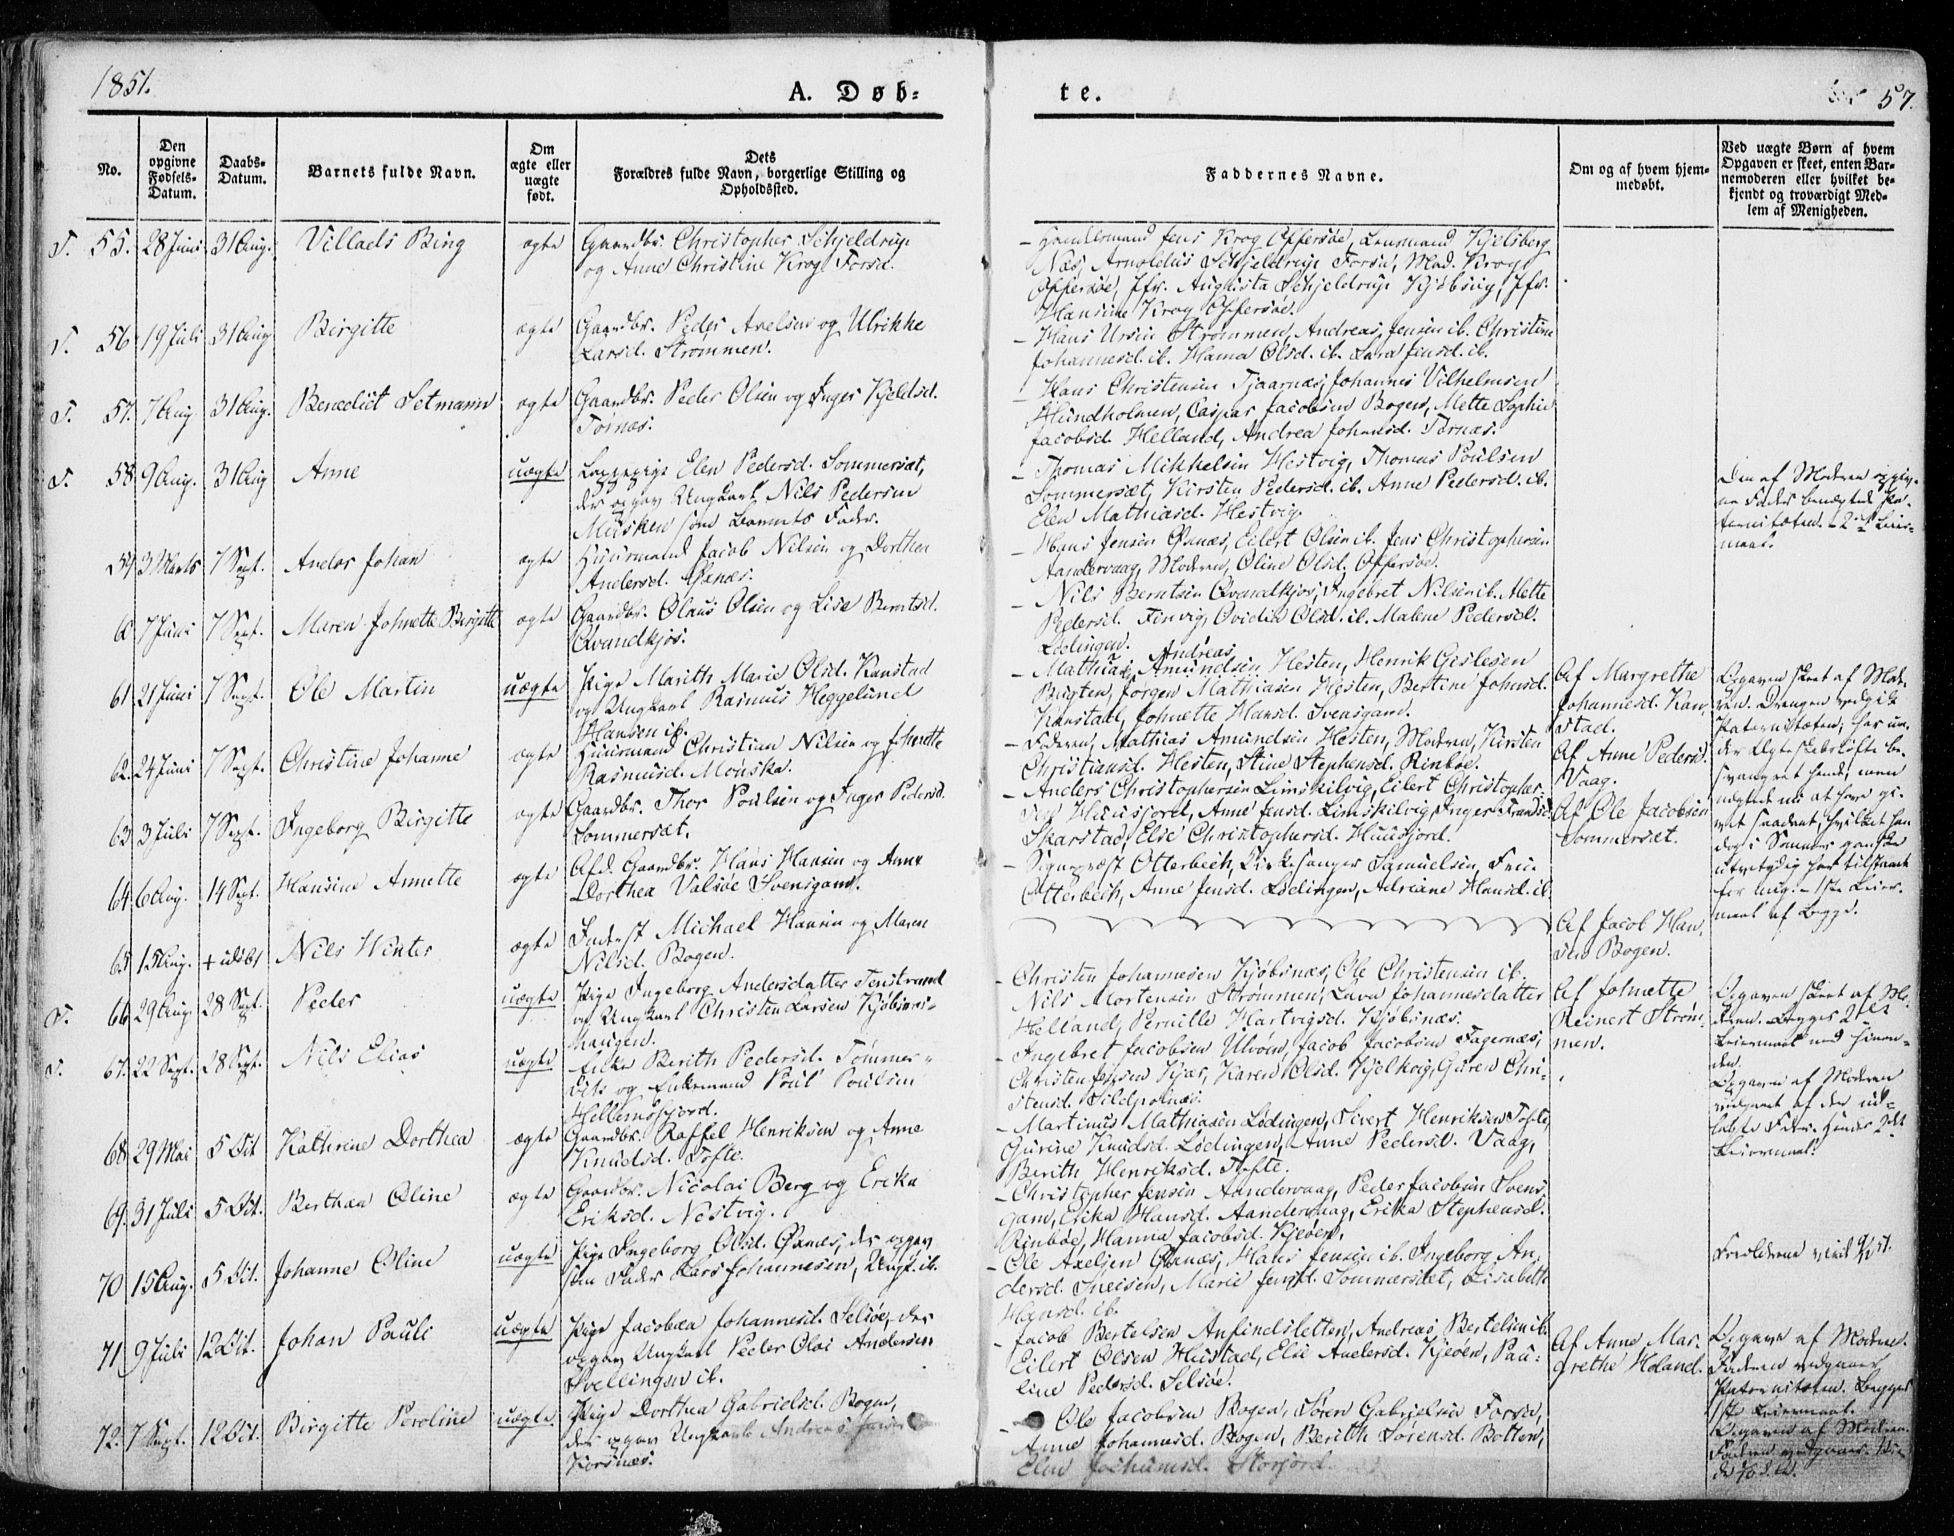 1851.
A. Døb-
te.
57.
No.
Den opgivne Fødsels-Datum.
Daabs-Datum.
Barnets fulde Navn.
Om ægte eller uægte født.
Dets Forældres fulde Navn, borgerlige Stilling og Opholdssted.
Faddernes Navne.
Om og af hvem hjem-medøbt.
Ved uægte Børn af hvem Opgaven er skeet, enten Bar-nemoderen eller hvilket be-kjendt og troværdigt Med-lem af Menigheden.
T. 55. 28 Juni 31 Aug. Villads Bing ægte Gaardbr. Christopher Schjeldrup
og Anne Christine Krog Forsa.
– Handelsmand Jens Krog Offersøe, Lensmand Kjelsberg
Næs, Arnoldus Schjeldrup Forsa, Mad. Krog
Offersøe, Jfr. Augusta Schjeldrup, Jfr.
Hansine Krog Offersøe.
T. 56 19 Juli 31 Aug. Birgitte ægte Gaardbr. Peder Axelsen og Ulrikke
Larsd. Strømmen.
– Hans Ursin Strømmen, Andreas Jensen ib. Christine
Johannesd. ib. Hanna Olsd. ib. Lara Jensd. ib.
T. 57. 7 Aug 31 Aug. Benedict Setmann ægte Gaardbr. Peder Olsen og Inger Kjeldsd.
Tornæs.
– Hans Christensen Tjaarnæs, Johannes Vilhelmsen
Hundholmen, Caspar Jacobsen Bogen, Mette Sophie
Jacobsd. Helland, Andrea Johansd. Tornæs.
T. 58 9 Aug. 31 Aug Anne uægte Lappepige Elen Pedersd. Sommersæt,
der opgav Ungkarl Nils Pedersen
Musken som Barnets Fader.
– Thomas Mikkelsen Hestvig, Thomas Poulsen
Sommersæt, Kirsten Pedersd. ib. Anne Pedersd. ib.
Elen Mathiasd. Hestvig.
Den af Moderen opgiv-
ne Fader benægtede Pa-
terniteten. 2det Leier-
maal.
59 3 Marts 7 Sept. Anders Johan ægte Huusmand Jacob Nilsen og Dorthea
Andersd. Øxnæs.
– Hans Jensen Øxnæs, Eilert Olsen ib. Jens Christophersen
Aandervaag, Moderen, Oline Olsd. Offersøe.
60 7 Juni 7 Sept. Maren Johnette Birgitte ægte Gaardbr. Olaus Olsen og Lise Berntsd.
Qvandkjos.
– Nils Berntsen Qvandkjos, Ingebret Nilsen ib. Mette
Pedersd. Finvig, Ovidia Olsd. ib. Malene Pedersd.
Lødingen.
61 21 Juni 7 Sept. Ole Martin uægte Pige Marith Marie Olsd. Kanstad
og Ungkarl Rasmus Heggelund
Hansen ib.
Andreas
– Mathias Amundsen Hesten, Henrik Geslesen
Bugten, Jørgen Mathiasen Hesten, Bertine Johnsd.
Kanstad, Johnette Hansd. Svensgam.
Af Margrethe
Johannesd. Kan-
stad.
Opgaven skeet af Mode-
ren. Drengen vedgik
Paterniteten, har un-
der Ægteskabsløfte be-
svangret hende, men
nægtede nu at have gi-
vet saadant, hvilket han
dog i Sommer ganske
utvetydig har tilstaaet
for mig. – 1ste Leier-
maal af begge.
62. 24 Juni 7 Sept. Christine Johanne ægte Huusmand Christian Nilsen og Johnette
Rasmusd. Monska.
– Faderen, Mathias Amundsen Hesten, Moderen, Kirsten
Christiansd. Hesten, Stine Stephensd. Rinbøe.
Af Anne Pedersd.
Vaag.
63. 3 Juli 7 Sept. Ingeborg Birgitte ægte Gaardbr. Thor Poulsen og Inger Pedersd.
Sommersæt.
– Anders Christophersen Limskilvig, Eilert Christopher-
sen Huusfjord, Anne Jensd. Limskilvig, Inger Fransd.
Skarstad, Else Christophersd. Huusfjord.
Af Ole Jacobsen
Sommersæt.
64. 6 Aug. 14 Sept. Hansine Annette ægte Afd. Gaardbr. Hans Hansen og Anne
Dorthea Valsøe Svensgam.
– Sognepræst Otterbech, Kirkesanger Samuelsen, Frue
Otterbech, Anne Jensd. Lødingen, Adriane Hansd. ib.
65 15 Aug. + udøbt Nils Winter ægte Inderst Michael Hansen og Maren
Nilsd. Bogen.
Af Jacob Han-
sen Bogen.
T. 66 29 Aug. 28 Sept. Peder uægte Pige Ingeborg Andersdatter Tenstrand
og Ungkarl Christen Larsen Kjøbsnæs-
haugen.
– Christen Johannesen Kjøbsnæs, Ole Christensen ib.
Nils Mortensen Strømmen, Lava Johannesdatter
Helland, Pernille Hartvigsd. Kjøbsnæs.
Af Johnette
Reinert Strøm-
men.
Opgaven skeet af Mo-
deren. Begges 2det
Leiermaal med hinan-
den.
T. 67. 22 Sept. 28 Sept. Nils Elias uægte Enke Berith Pedersd. Tømmer-
eid og Enkemand Poul Poulsen
Hellemofjord.
– Ingebret Jacobsen Ulvøen, Jacob Jacobsen Fagernæs,
Christen Jensen Kjær, Karen Olsd. Kjelkvig, Guren Chri-
stensd. Sildpolnæs.
Opgaven af Moderen
vedgaaet af den ud-
lagte Fader. Hendes 2det
Leiermaal.
68 29 Mai 5 Oct Kathrine Dorthea ægte Gaardbr. Raffel Henriksen og Anne
Knudsd. Tofte.
– Martinus Mathiasen Lødingen, Sivert Henriksen Tofte,
Gurine Knudsd. Lødingen, Anne Pedersd. Vaag,
Berith Henriksd. Tofte.
69. 31 Juli 5 Oct. Berthea Oline ægte Gaardbr. Nicolai Berg og Erika
Eriksd. Nestvig.
– Christopher Jensen Aandervaag, Peder Jacobsen Svens-
gam, Erika Hansd. Aandervaag, Erika Stephensd.
Rinbøe, Hanna Jacobsd. Kjeøen.
70 15 Aug. 5 Oct. Johanne Oline uægte Pige Ingeborg Olsd. Øxnæs, der opgav
som Fader Lars Johannesen, Ungk. ib.
– Ole Axelsen Øxnæs, Hans Jensen ib. Ingeborg An-
dersd. Sneisen, Marie Jensd. Sommersæt, Lisabeth
Hansd. ib.
Forældrene viede
71 9 Juli 12 Oct. Johan Pauli uægte Pige Jacobæa Johannesd. Selsøe, der
opgav Ungkarl Peder Olai Andersen
Svellingen ib.
– Jacob Bertelsen Anfindsletten, Andreas Bertelsen ib.
Eilert Olsen Hustad, Else Andersd. Kjeøen, Pau-
line Pedersd. Selsøe.
Af Anne Mar-
grethe Holand.
Opgaven af Moderen.
Faderen vedgaaer
Paterniteten. Begges
1ste Leiermaal.
72. 7 Sept. 12 Oct. Birgitte Peroline uægte Pige Dorthea Gabrielsd. Bogen,
der opgav Ungkarl Andreas
Korsnæs.
– Ole Jacobsen Bogen, Søren Gabrielsen Forsa,
Anne Johannesd. Bogen, Berith Sørensd. Botten,
Elen Jochumsd. Storjord.
Opgaven af Moderen.
Faderen vedgaaer.